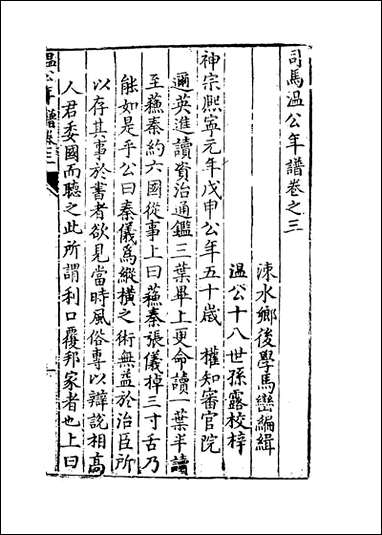 司馬溫公年譜卷之三
涑水鄉後學馬巒編緝
溫公十八世孫露校梓
神宗熙寧元年戊申公年五十歲 權知審官院
邇英進讀資治通鑑三葉畢上更命讀一葉半讀
至蘇秦約六國從事上曰蘇秦張儀掉三寸舌乃
能如是乎公曰秦儀爲縱橫之術無益於治臣所
以存其事於書者欲見當時風俗專以辯說相高
人君委國而聽之此所謂利口覆邦家者也上曰
溫公年譜卷三